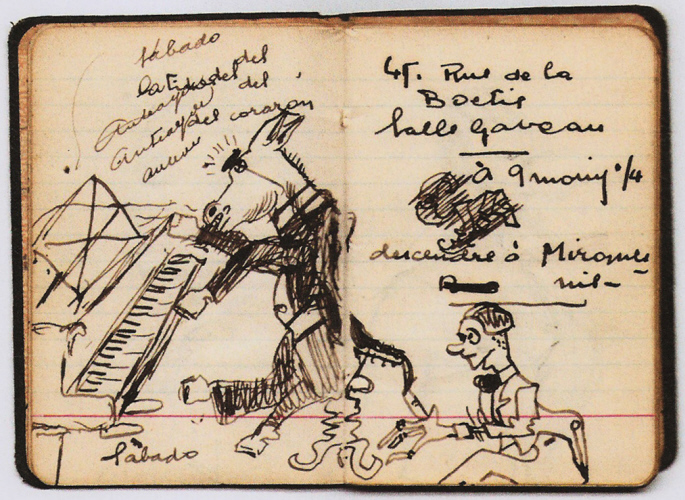 Sábado
Latidos del
del
Antes del corazón
Sábado
45. Rue de la
Boetie
Salle Gaveau
à 9 moins 1/4
descendre à Miromes
nil